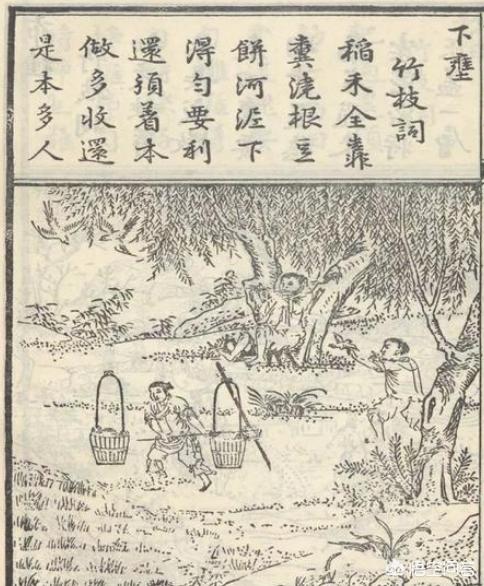 下壅
竹枝詞
稻禾全靠
糞澆根豆
餅河泥下
淂勻要利
還須着本
做多收還
是本多人
悟空问答